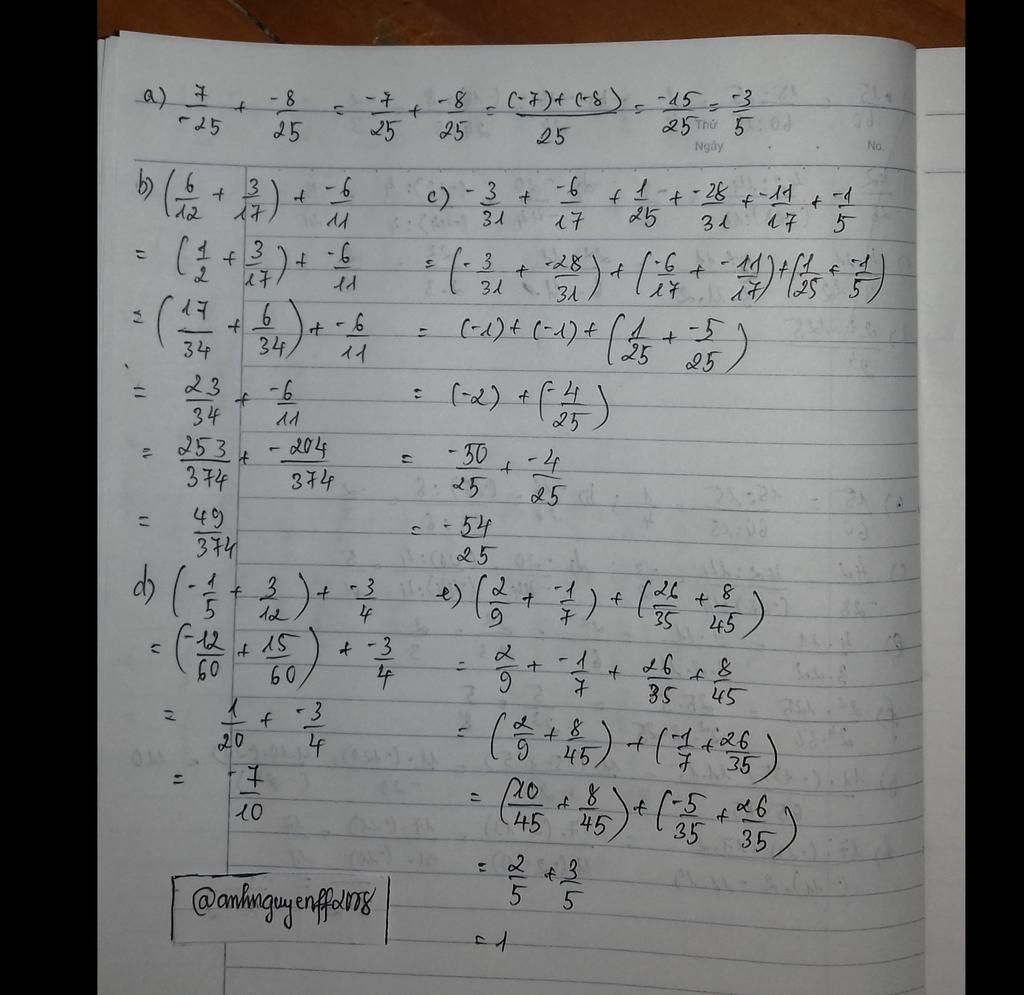 a) 7/-25 + -8/25 = -7/25 + -8/25 = (-7)+(-8)/25 = -15/25 = -3/5
Thứ
Ngày No.
b) (6/12 + 3/17) + -6/11
= (1/2 + 3/17) + -6/11
= (17/34 + 6/34) + -6/11
= 23/34 + -6/11
= 253/374 + -204/374
= 49/374
c) -3/31 + -6/17 + 1/25 + -28/31 + -11/17 + -1/5
= (-3/31 + -28/31) + (-6/17 + -11/17) + (1/25 + -1/5)
= (-1) + (-1) + (1/25 + -5/25)
= (-2) + (-4/25)
= -50/25 + -4/25
= -54/25
d) (-1/5 + 3/12) + -3/4
= (-12/60 + 15/60) + -3/4
= 1/20 + -3/4
= -7/10
e) (2/9 + -1/7) + (26/35 + 8/45)
= 2/9 + -1/7 + 26/35 + 8/45
= (2/9 + 8/45) + (-1/7 + 26/35)
= (10/45 + 8/45) + (-5/35 + 26/35)
= 2/5 + 3/5
= 1
@anhnguyenff2008